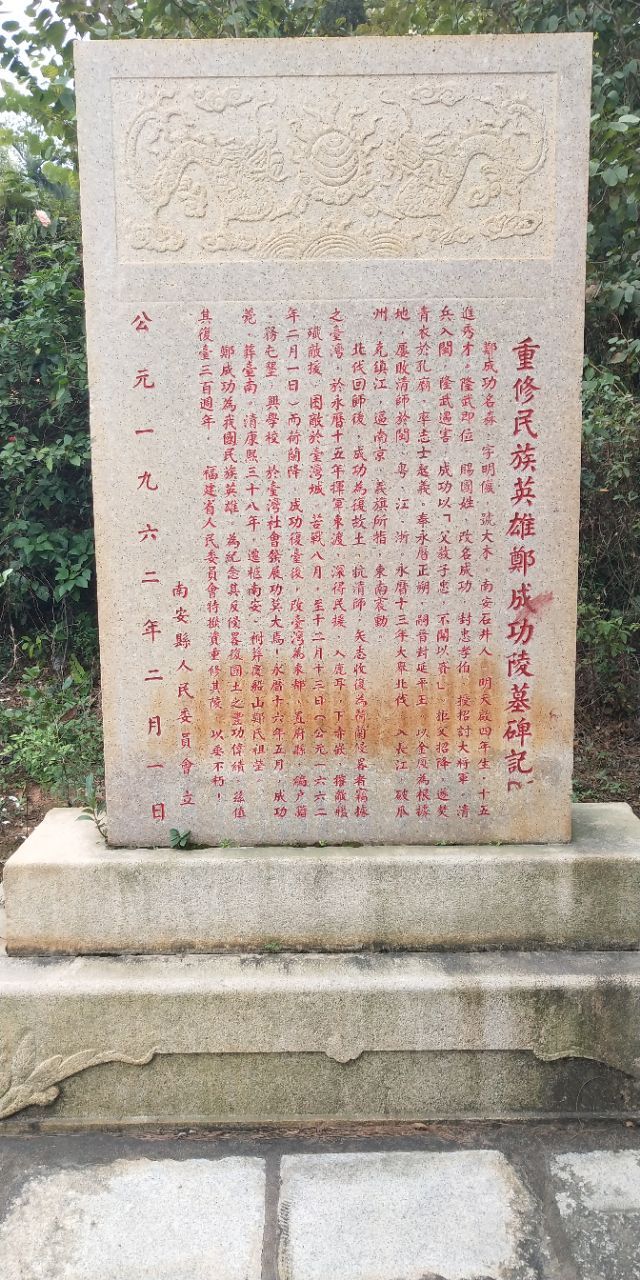 重修民族英雄鄭成功陵墓碑記
鄭成功名森，字明儼，號大木，南安石井人。明天啟四年生，十五
進秀才。隆武即位，賜國姓，改名成功，封忠孝伯，授招討大將軍。清
兵入閩，隆武遇害，成功以「父教子忠，不聞以貳」，拒父招降，遂焚
青衣於孔廟，率志士起義。奉永曆正朔，嗣晋封延平王。以金廈為根據
地，屢敗清師於閩、粵、江、浙。永曆十三年大舉北伐，入長江，破瓜
州，克鎮江，逼南京，義旗所指，東南震動。
北伐回師後，成功為復故土，抗清師，矢志收復為荷蘭侵畧者竊據
之臺灣，於永曆十五年揮軍東渡，深得民援，入鹿耳，下赤嵌，擋敵艦
，殲敵援，困敵於臺灣城，苦戰八月，至十二月十三日（公元一六六二
年二月一日）而荷蘭降。成功復臺後，改臺灣為東都，置府縣，編户籍
，務屯墾，興學校，於臺灣社會發展功莫大焉！永曆十六年五月，成功
薨，葬臺南。清康熙三十八年，遷柩南安，祔葬覆船山鄭氏祖塋。
鄭成功為我國民族英雄。為紀念其反侵畧復國土之豐功偉績，茲值
其復臺三百週年，福建省人民委員會特撥資重修其陵，以垂不朽！
南安縣人民委員會立
公元一九六二年二月一日